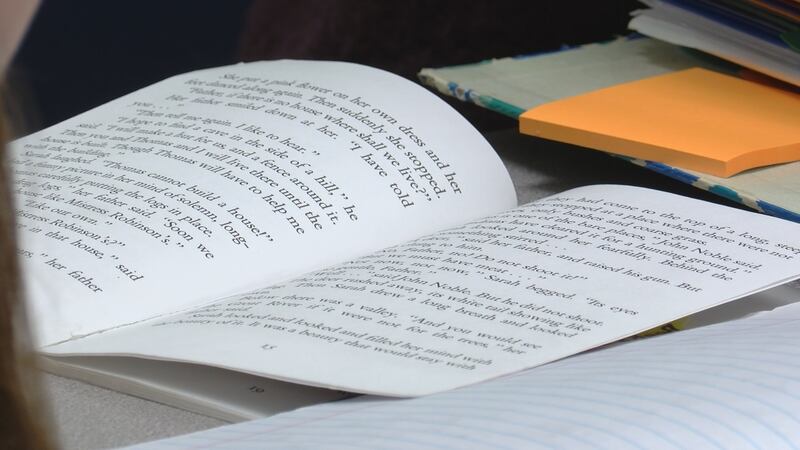 She put a pink flower on her own dress and her
feet danced along again. Then suddenly she stopped.
"Father, if there is no house where shall we live?"
Her father smiled down at her. "I have told
you . . . "
"Then tell me again. I like to hear."
"I hope to find a cave in the side of a hill," he
said. "I will make a fire for us, and a fence around it.
Then you and Thomas and I will live there until the
house is built. Though Thomas will have to help me
with the
Sarah laughed. "Thomas cannot build a house!"
had a funny picture in her mind of solemn, long-
Thomas carefully putting the logs in place.
legs," her father said. "Soon we
"Like our own."
like Mistress Robinson's."
Mistress Robinson's?"
in that house," said
her father
they had come to the top of a long, steep
stopped at a place where there were not
only bushes and coarse grass.
bare places," John Noble said.
cleared it for a hunting ground."
looked around her fearfully. Behind the
stirred . . .
said her father, and raised his gun. But
no! Do not shoot it!"
we must have meat . . . "
now, not now," Sarah begged. "Its eyes
Father."
said John Noble. But he did not shoot.
rushed away, its white tail showing like
Then Sarah drew a long breath and looked
there was a valley. "And you would see
if it were not for the trees," her
father said.
Sarah looked and looked and filled her mind with
the beauty of it. It was a beauty that would stay with
15